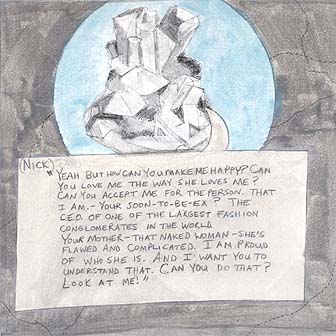 (NICK)
"YEAH BUT HOW CAN YOU MAKE ME HAPPY? CAN
YOU LOVE ME THE WAY SHE LOVES ME?
CAN YOU ACCEPT ME FOR THE PERSON. THAT
I AM.- YOUR SOON-TO-BE-EX? THE
C.E.O. OF ONE OF THE LARGEST FASHION
CONGLOMERATES IN THE WORLD.
YOUR MOTHER-THAT NAKED WOMAN-SHE'S
FLAWED AND COMPLICATED. I AM PROUD
OF WHO SHE IS. AND I WANT YOU TO
UNDERSTAND THAT. CAN YOU DO THAT?
LOOK AT ME!"